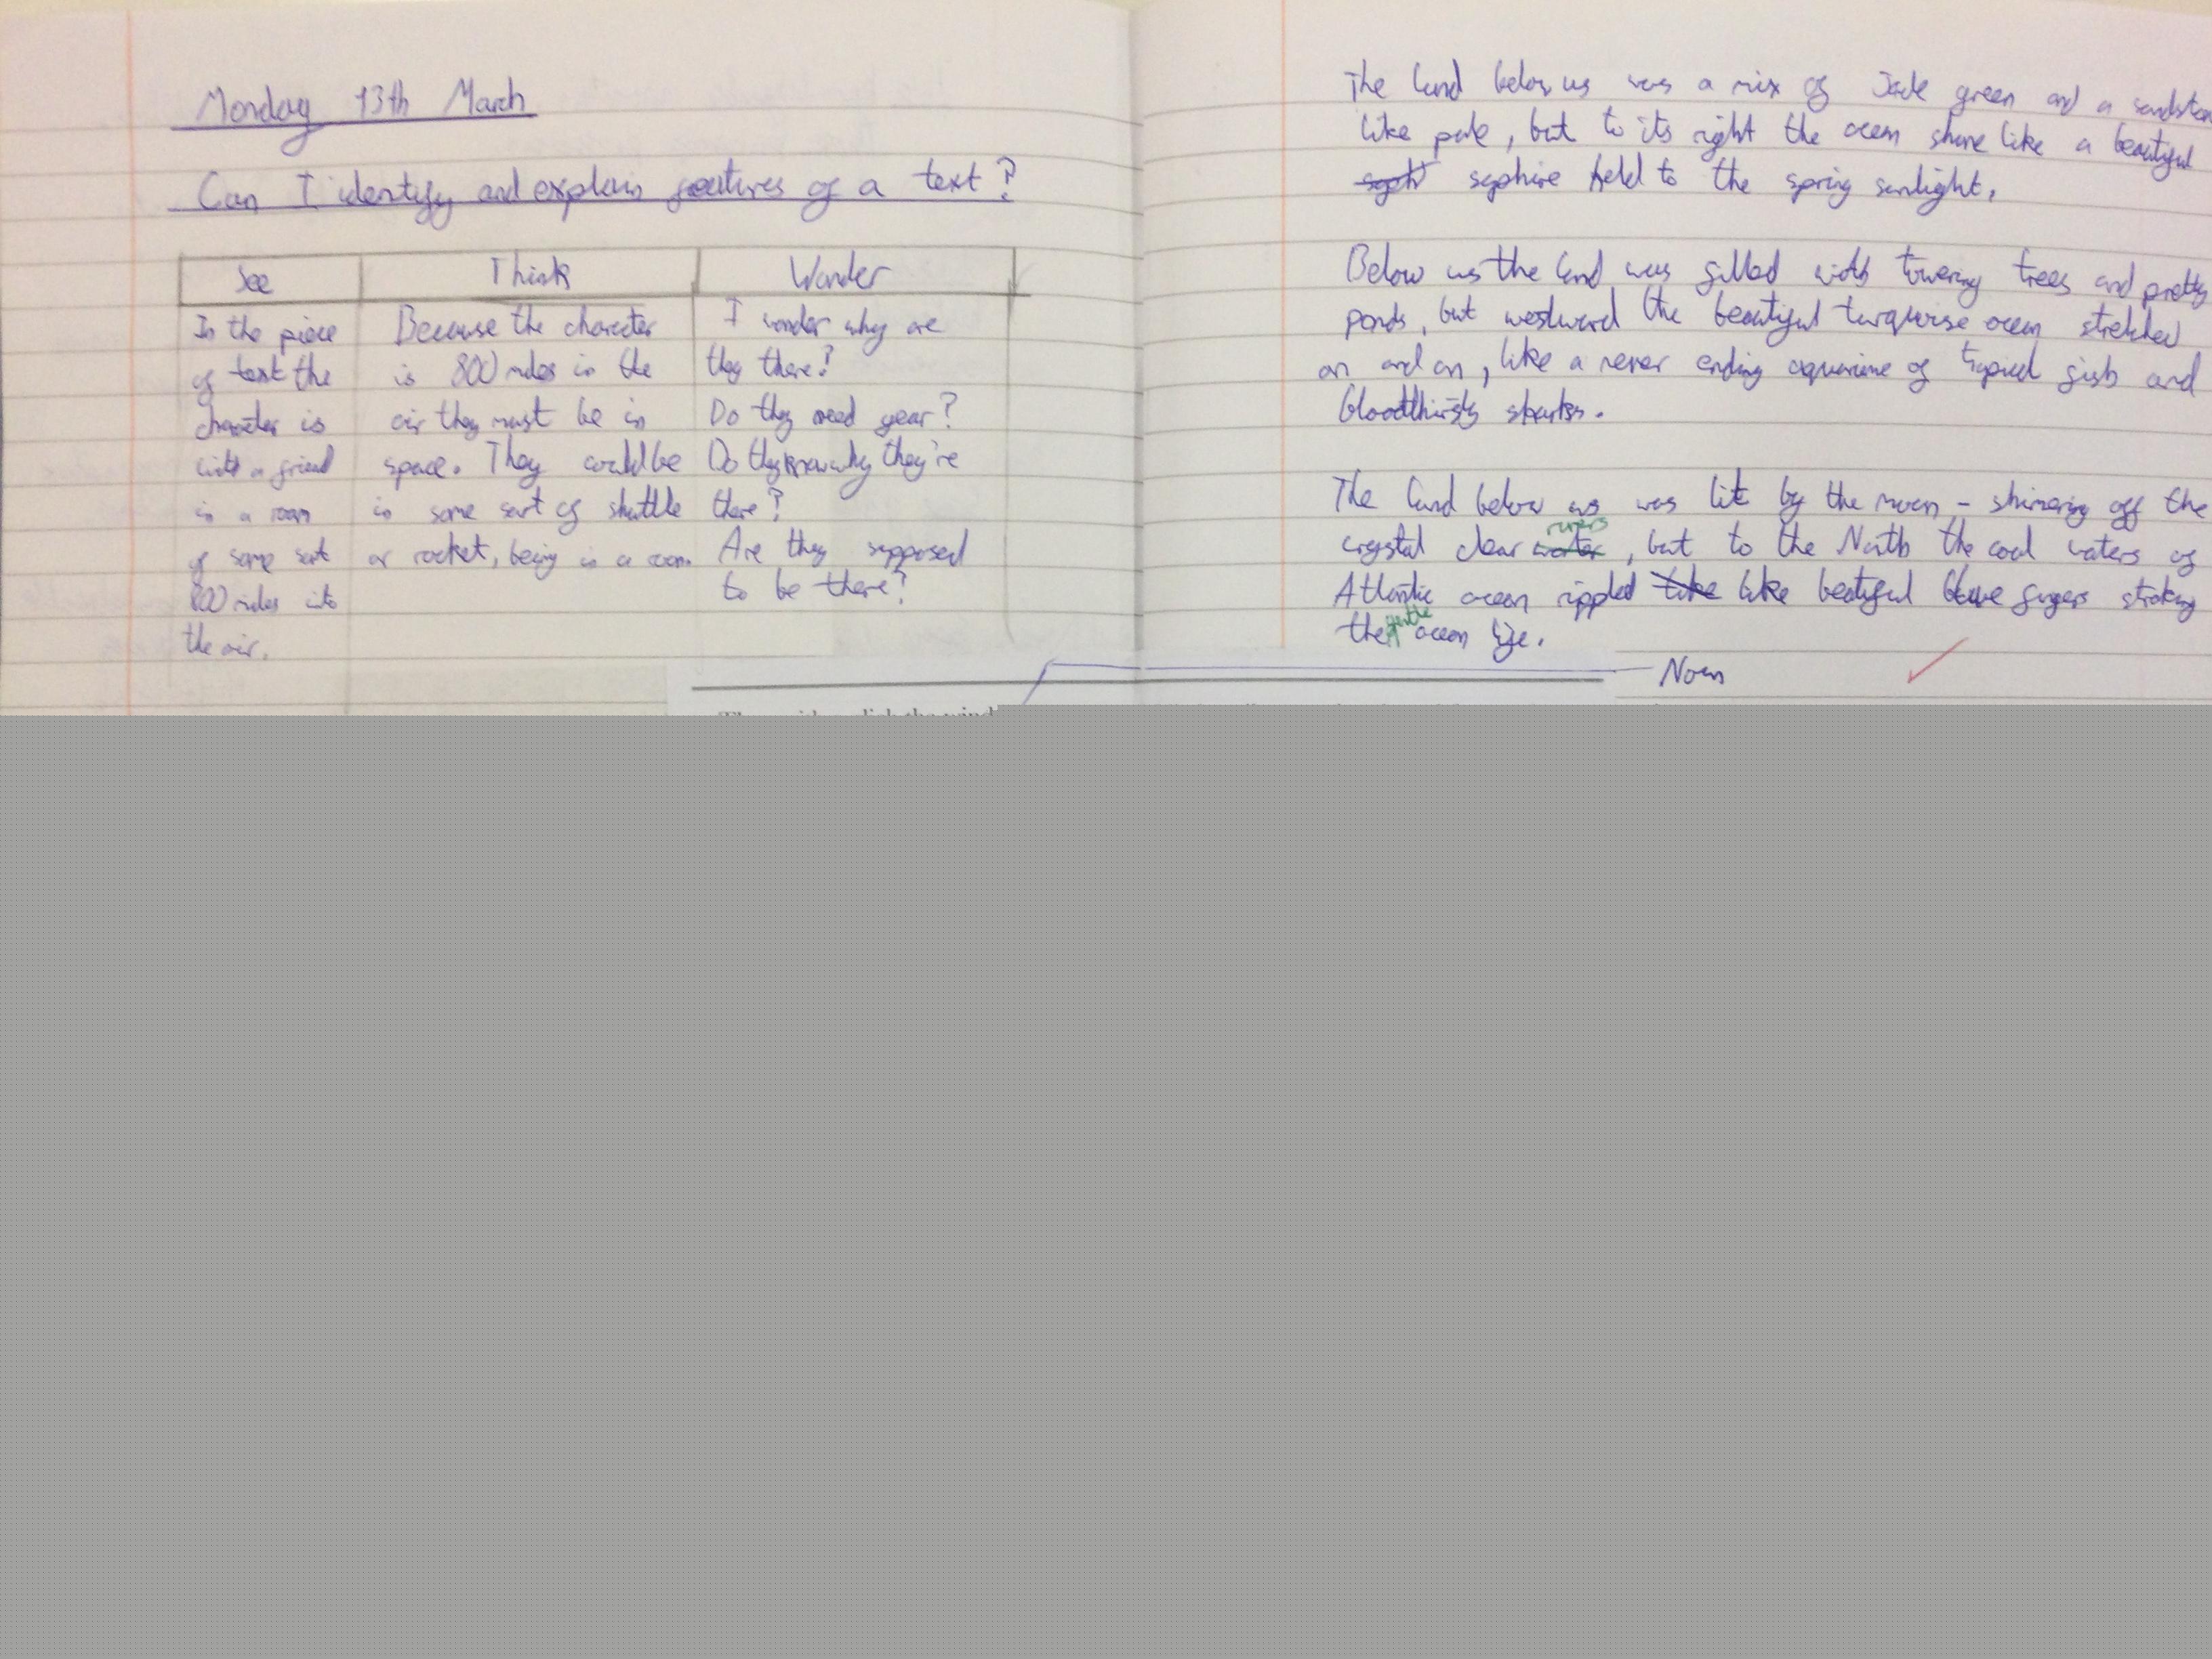 Monday 13th March
Can I identify and explain features of a text?
See
In the piece
of text the
character is
with a friend
in a room
of some sort
800 miles into
the air.
Think
Because the character
is 800 miles in the
air they must be in
space. They could be
in some sort of shuttle
or rocket, being in a room.
Wonder
I wonder why are
they there?
Do they need gear?
Do they know why they're
there?
Are they supposed
to be there?
The land below us was a mix of Jade green and a
like pale, but to its right the ocean shone like a beautiful
saphire held to the spring sunlight.
Below us the land was filled with towering trees and pretty
ponds, but westward the beautiful turquoise ocean stretched
on and on, like a never ending of fish and
bloodthirsty sharks.
The land below us was lit by the moon - shimering off the
crystal clear water rivers, but to the North the cool waters of
Atlantic ocean rippled like like beatiful blue fingers stroking
the gentle ocean life.
Noun